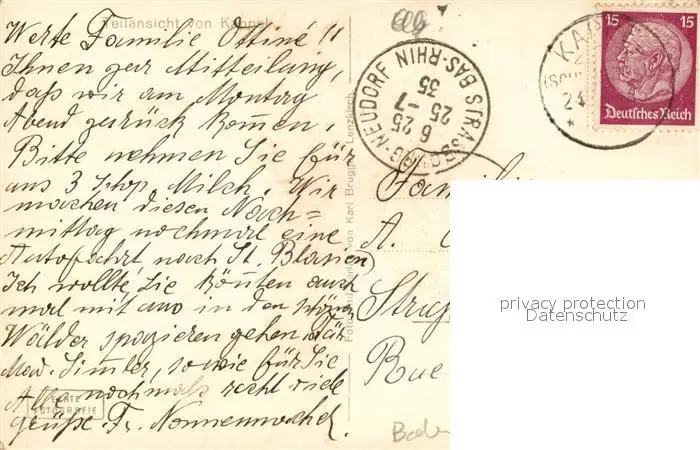 Teilansicht von Kappel
Werte Familie Ottiné!!
Ihnen zur Mitteilung,
daß wir am Montag
Abend zurück kommen.
Bitte nehmen Sie für
uns 3 Schop. Milch. Wir
machen diesen Nach=
mittag nochmal eine
Autofahrt nach St. Blasien
Ich wollte Sie könnten auch
mal mit uns in den
Wälder spazieren gehen. Für
Mad. Simler, sowie für Sie
Alle nochmals recht viele
grüße. Fr. Nonnenmacher.
ECHTE
FOTOGRAFIE
Karl Brugger, Lenzkirch
STRASSBURG-NEUDORF BAS-RHIN
6 25
25 -7
35
KAP
(SCH
24
*
15 15
Deutsches Reich
Familie
A.
Straß
Rue
privacy protection
Datenschutz
Baden